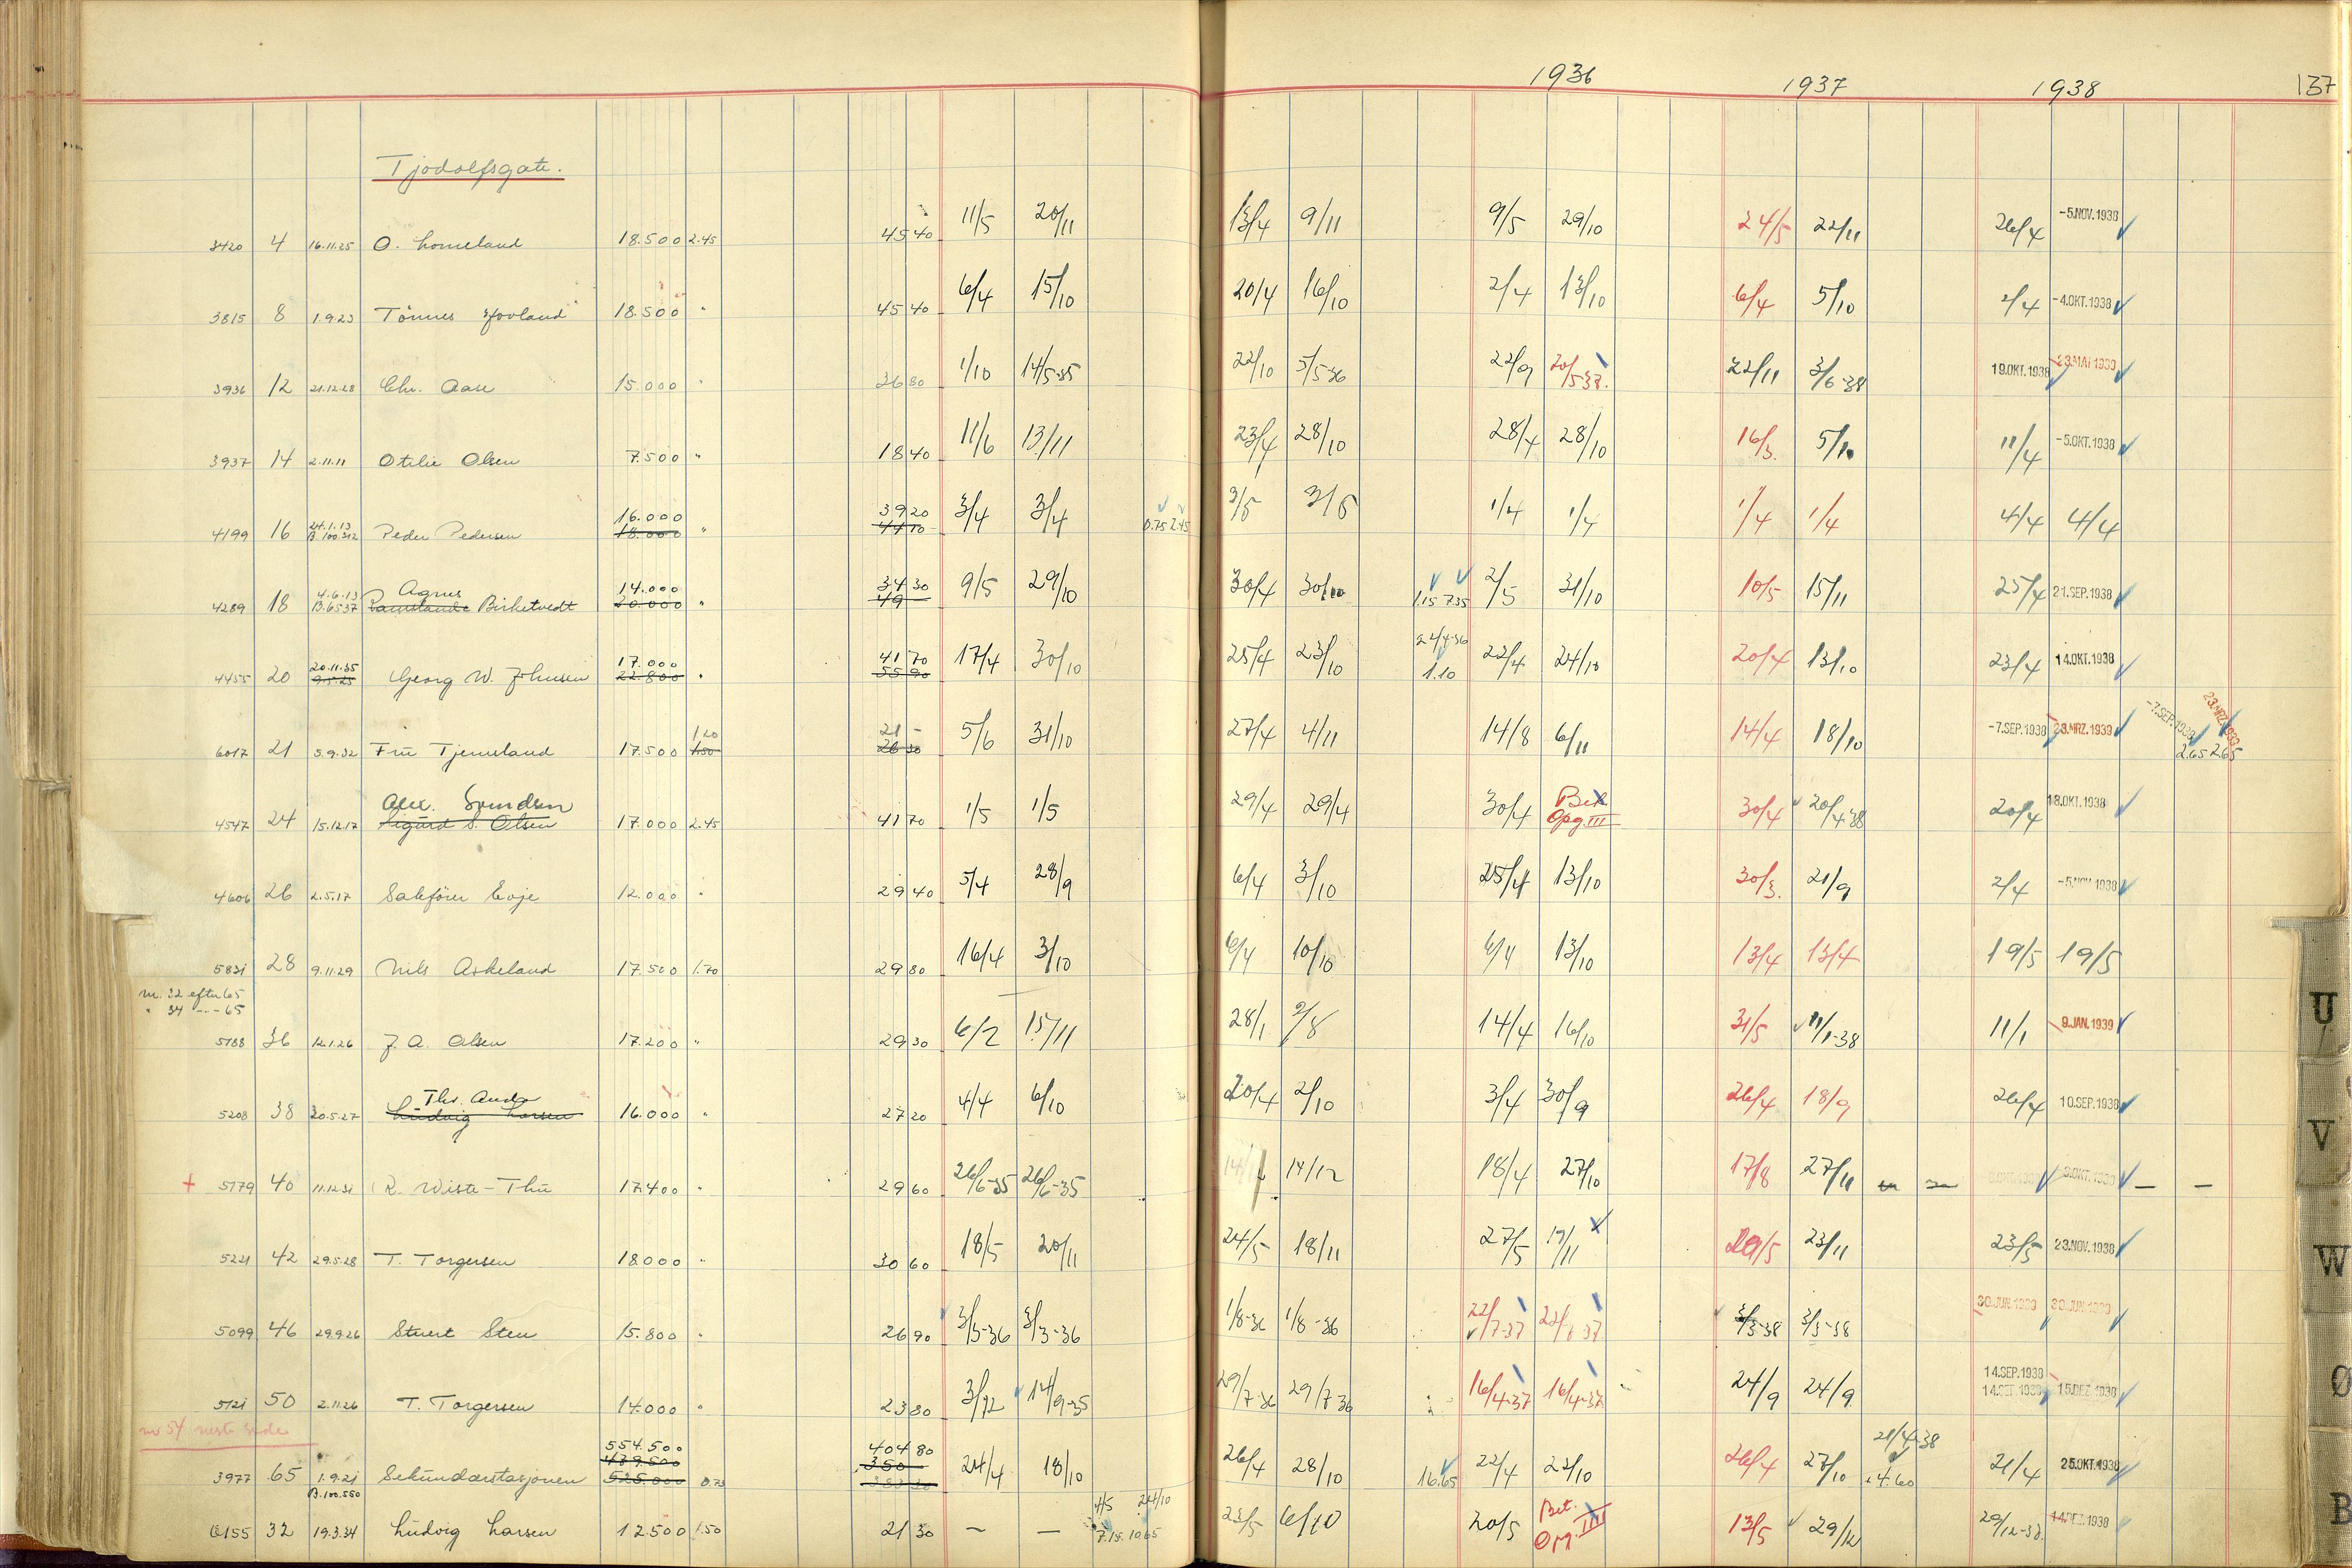 1936 1937 1938 137
Tjodolfsgate.
3420 4 16.11.25 O. Lomeland 18.500 2.45 45 40 11/5 20/11 13/4 9/11 9/5 29/10 24/5 22/11 26/4 -5.NOV.1938
3815 8 1.9.23 Tönnes Hovland 18.500 " 45 40 6/4 15/10 20/4 16/10 2/4 13/10 6/4 5/10 2/4 -4.OKT.1938
3936 12 21.12.28 Chr. Aase 15.000 " 36 80 1/10 14/5-35 22/10 5/5-36 22/9 20/5-37. 22/11 3/6-38 19.OKT.1938 23.MAI 1939
3937 14 2.11.11 Otilie Olsen 7.500 " 18 40 11/6 13/11 23/4 28/10 28/4 28/10 16/3. 5/10 11/4 -5.OKT.1938
16.000 39 20
4199 16 24.1.13 B.100.312 Peder Pedersen 18.000 " 44 10 3/4 3/4 0.75 2.45 3/5 3/5 1/4 1/4 1/4 1/4 4/4 4/4
Agnes 14.000 34 30
4289 18 4.6.13 B.6537 Birketvedt 20.000 " 49 - 9/5 29/10 30/4 30/10 1.15 7.35 2/5 31/10 10/5 15/11 25/4 21.SEP.1938
20.11.35 17.000 41 70 22/4-36
4455 20 9.5.25 Georg W. Johnsen 22.800 " 55 90 17/4 30/10 25/4 23/10 1.10 22/4 24/10 20/4 13/10 23/4 14.OKT.1938
1.20 21 - -7.SEP.1938 23.MRZ.1939
6017 21 5.9.32 Fru Tjemeland 17.500 1.50 26 30 5/6 31/10 27/4 4/11 14/8 6/11 14/4 18/10 -7.SEP.1938 23.MRZ.1939 2.65 2.65
Alex. Svendsen
4547 24 15.12.17 Sigurd S. Olsen 17.000 2.45 41 70 1/5 1/5 29/4 29/4 30/4 Bet. Opg. III 30/4 20/4-38 20/4 18.OKT.1938
4606 26 2.5.17 Sakförer Evje 12.000 " 29 40 5/4 28/9 6/4 3/10 25/4 13/10 30/3. 21/9 2/4 -5.NOV.1938
5831 28 9.11.29 Nils Askeland 17.500 1.70 29 80 16/4 3/10 6/4 10/10 6/4 13/10 13/4 13/4 19/5 19/5
nr. 32 efter 65
" 34 --- 65
5188 36 12.1.26 J. A. Olsen 17.200 " 29 30 6/2 15/11 28/1 2/8 14/4 16/10 31/5 11/1-38 11/1 9.JAN.1939
5208 38 20.5.27 Ludvig Larsen 16.000 " 27 20 4/4 6/10 20/4 2/10 3/4 30/9 26/4 18/9 26/4 10.SEP.1938
+ 5779 40 11.12.31 R. Wiste-Thu 17.400 " 29 60 26/6-35 26/6-35 14/12 18/4 27/10 17/8 27/11 — —
5221 42 29.5.28 T. Torgersen 18.000 " 30 60 18/5 20/11 24/5 18/11 27/5 19/11 29/5 23/11 23/5 23.NOV.1938
5099 46 29.9.26 Sten 15.800 " 26 90 3/3-36 3/3-36 1/8-36 1/8-36 22/7-37 3/3-38 3/3-38 30.JUN.1939 30.JUN.1939
14.SEP.1938
5121 50 2.11.26 T. Torgersen 14.000 " 23 80 3/12 14/9-35 29/7-36 29/7 36 16/4-37 16/4-37 24/9 24/9 15.DEZ.1938
nr 54 neste side
554.500 404 80 21/4-38
439.500 350 -
3977 65 1.9.21 Sekundærstasjonen 525.000 0.73 24/4 18/10 26/4 28/10 16.65 22/4 22/10 26/4 27/10 21/4 25.OKT.1938
B.100.550
4/5 24/10
6155 32 19.3.34 Ludvig Larsen 12.500 1.50 21 30 — — 7.15. 10.65 23/5 6/10 20/5 Bet. Opg. III 13/5 29/12 29/12-38. 14.DEZ.1938
U
V
W
Ø
B